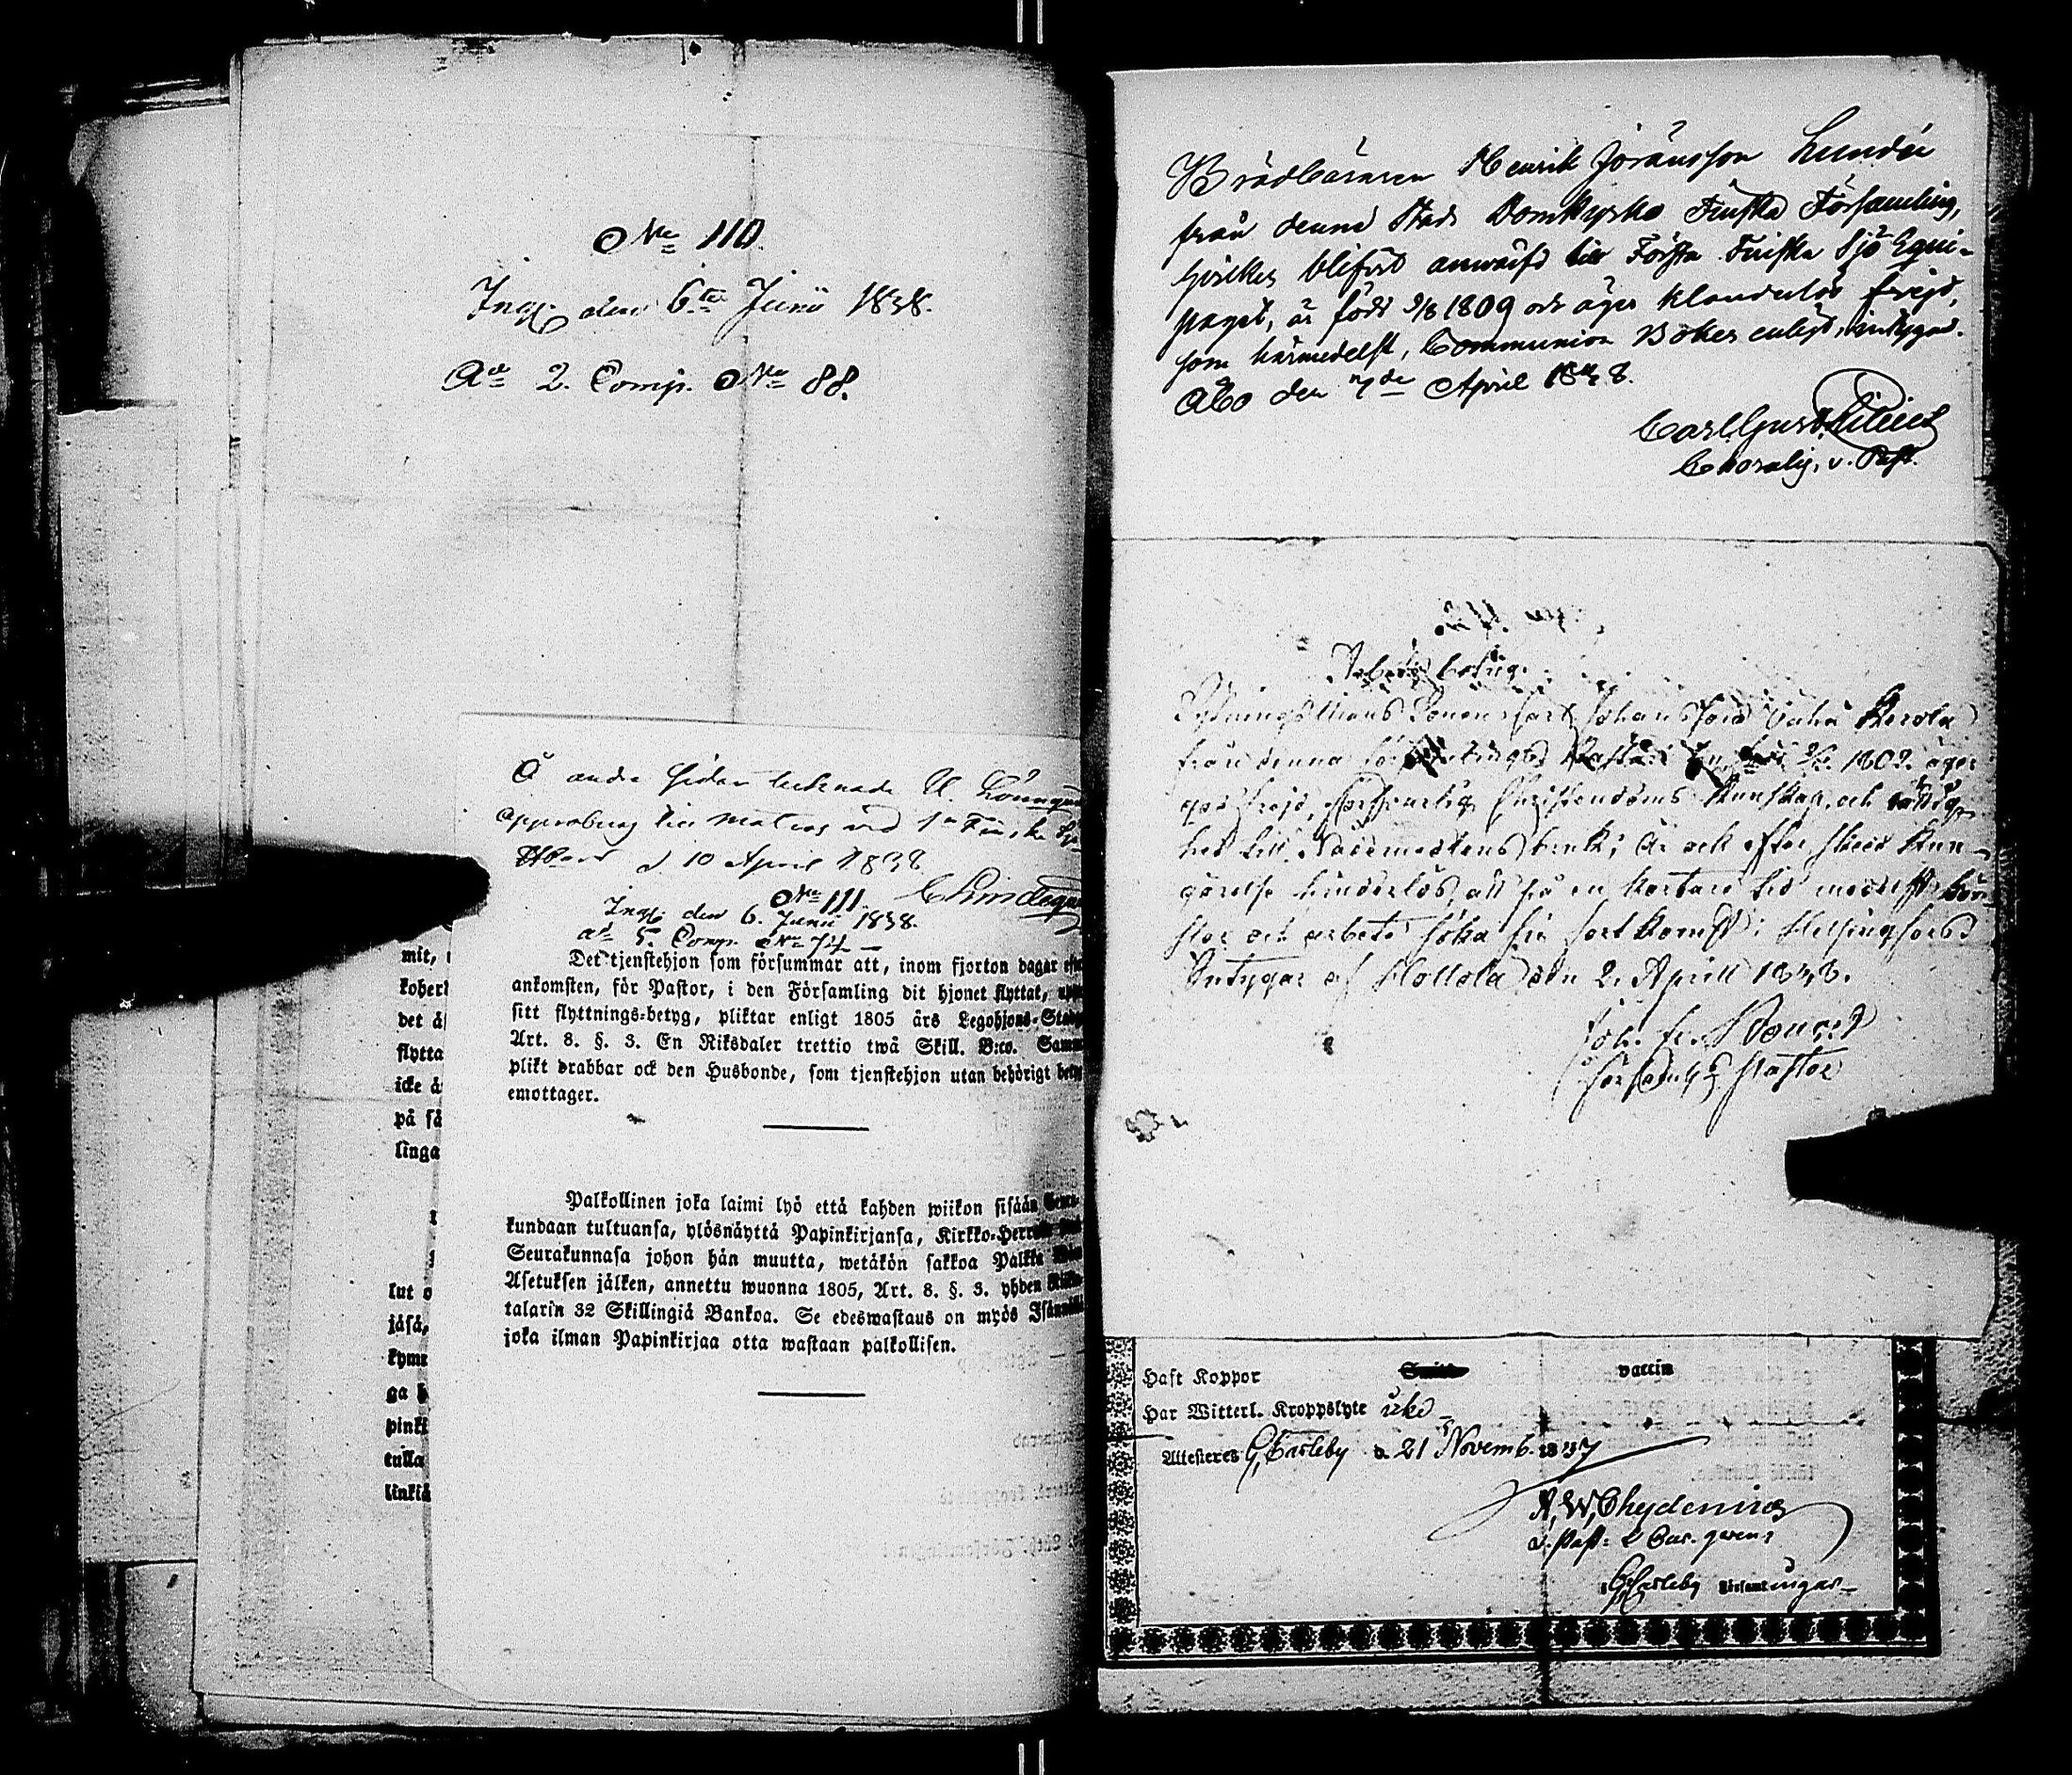 No 110.
Ing. den 6te Junii 1838.
Ad 2. Comp. No 88.
mit,
kobert
det å
flytta
icke å
på få
linga
lut o
jäså,
kymr
ga h
pinki
tulla
linkiä
Å andra sidan tecknade H. Lönnqu
approberas till matros vid 1a Finska Sjö
d 10 April 1838
No 111. C Lindequ
Ing. den 6. Junii 1838.
ad 5. Comp. No 74 —
Det tjenstehjon som försummar att, inom fjorton dagar efter
ankomsten, för Pastor, i den Församling dit hjonet flyttat,
sitt flyttnings-betyg, pliktar enligt 1805 års Legohjons-Stad
Art. 8. §. 3. En Riksdaler trettio twå Skill. B:co. Samm
plikt drabbar ock den Husbonde, som tjenstehjon utan behörigt bety
emottager.
Palkollinen joka laimi lyö että kahden wiikon sisään Seura-
kundaan tultuansa, ylösnäyttä Papinkirjansa, Kirkko-Herralle
Seurakunnasa johon hän muutta, wetäkön sakkoa Palkka
Asetuksen jälken, annettu wuonna 1805, Art. 8. §. 3. yhden Riks-
talarin 32 Skillingiä Bankoa. Se edeswastaus on myös Isännällä
joka ilman Papinkirjaa otta wastaan palkollisen.
Brödbäraren Henrik Joransson Lundén
från denne Stads Domkyrko Finska Församling,
hvilken blifvit anvist till Första Finska Sjö Equi-
paget, är född 9/8 1809 och äger klanderlös frejd,
som härmedelst, Communion Boken enligt, intygas.
Åbo den 7de April 1838.
Carl Gust.
v. Past.
Arbets betyg.
Johansson Kerola
från denna 1802. äger
god frejd, försvarlig Christendoms kunskap, och
het till Nattvardens bruk; är ock efter skedd kun-
görelse hinderlös, att på en kortare tid medelst kör-
slor och arbete söka sin fortkomst i Helsingfors
Intygar af Hollola den 2. Aprill 1838.
Joh. Fr.
Församl:s Pastor
Haft Koppor vaccin
Har Witterl. Kroppslyte icke
Attesteres G, Carleby d. 21 Novemb. 1837
A, W, Chydenius
v. Past:
G, Carleby Församlingar